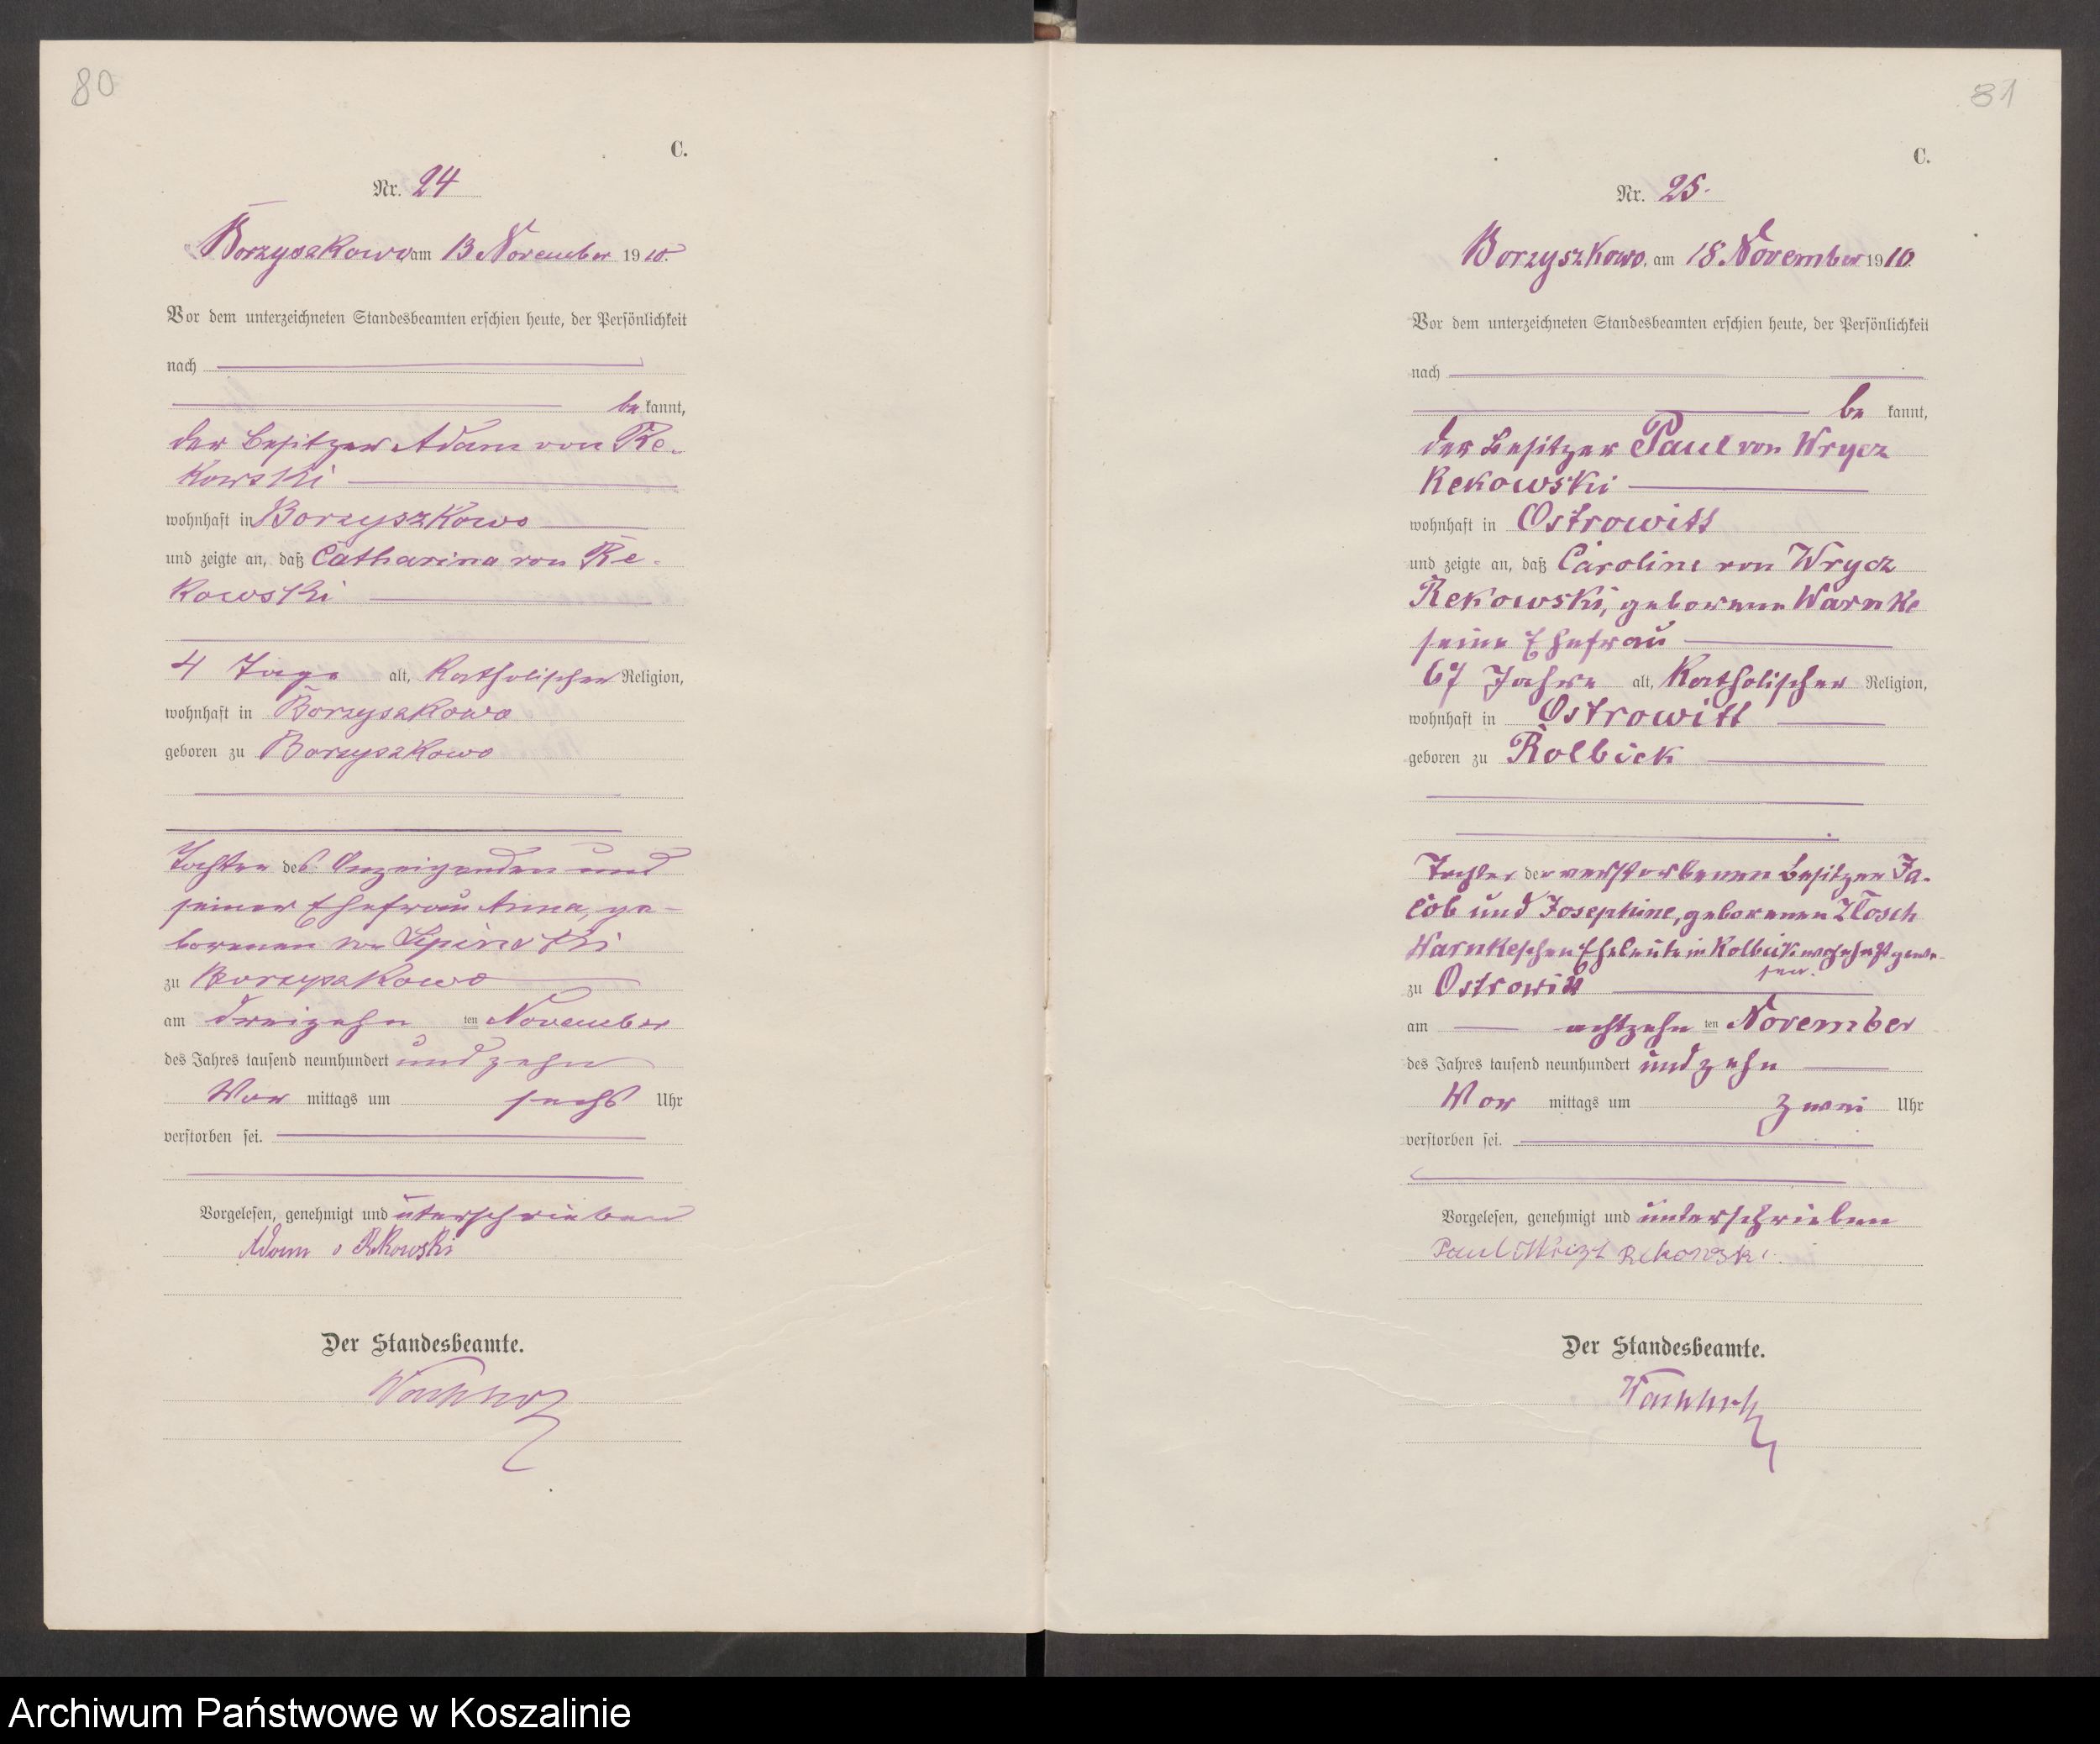 80
C.
Nr. 24
Borzyszkowo am 13 November 1910.
Vor dem unterzeichneten Standesbeamten erschien heute, der Persönlichkeit
nach
be kannt,
der Besitzer Adam von Re-
kowski
wohnhaft in Borzyszkowo
und zeigte an, daß Catharina von Re-
kowski
4 Tage alt, katholischer Religion,
wohnhaft in Borzyszkowo
geboren zu Borzyszkowo
Tochter des Anzeigenden und
seiner Ehefrau Anna, ge-
borenen von Lipinski
zu Borzyszkowo
am dreizehn ten November
des Jahres tausend neunhundert und zehn
Vor mittags um sechs Uhr
verstorben sei.
Vorgelesen, genehmigt und unterschrieben
Adam v Rekowski
Der Standesbeamte.
81
C.
Nr. 25.
Borzyszkowo, am 18 November 1910.
Vor dem unterzeichneten Standesbeamten erschien heute, der Persönlichkeit
nach
be kannt,
der Besitzer Paul von Wrycz
Rekowski
wohnhaft in Ostrowitt
und zeigte an, daß Caroline von Wrycz
Rekowski, geborene Warnke
seine Ehefrau
67 Jahre alt, katholischer Religion,
wohnhaft in Ostrowitt
geboren zu Rolbick
Tochter der verstorbenen Besitzer Ja-
cob und Josephine, geborenen Zlosch
Warnkeschen Eheleute in Rolbick wohnhaft gewe-
sen.
zu Ostrowitt
am achtzehn ten November
des Jahres tausend neunhundert und zehn
Vor mittags um zwei Uhr
verstorben sei.
Vorgelesen, genehmigt und unterschrieben
Paul Rekowski.
Der Standesbeamte.
Archiwum Państwowe w Koszalinie